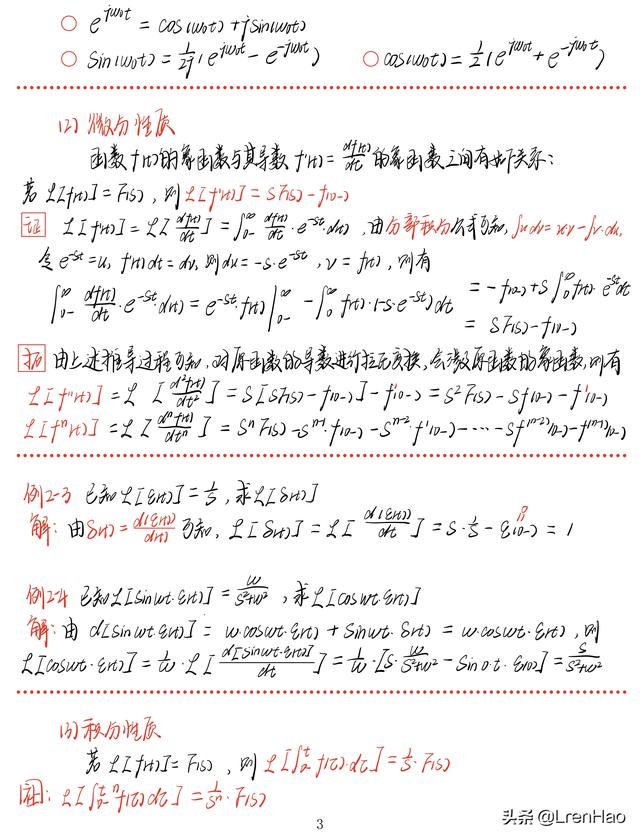 ○ e^{jω₀t} = cos(ω₀t)+jsin(ω₀t)
○ sin(ω₀t) = 1/2j (e^{jω₀t} - e^{-jω₀t})  ○ cos(ω₀t) = 1/2 (e^{jω₀t} + e^{-jω₀t})
(2) 微分性质
函数f(t)的象函数与其导数f'(t) = df(t)/dt 的象函数之间有如下关系:
若 L[f(t)] = F(s), 则 L[f'(t)] = SF(s) - f(0-)
证 L[f'(t)] = L[df(t)/dt] = ∫_{0-}^{∞} df(t)/dt · e^{-st} · d(t), 由分部积分公式可知, ∫udv = uv - ∫v·du,
令 e^{-st} = u, f'(t)dt = dv, 则 du = -s·e^{-st}, v = f(t), 则有
∫_{0-}^{∞} df(t)/dt · e^{-st} · d(t) = e^{-st} · f(t) |_{0-}^{∞} - ∫_{0-}^{∞} f(t)·(-s·e^{-st})dt = -f(0-) + S∫_{0-}^{∞} f(t)·e^{-st}dt
= SF(s) - f(0-)
拓 由上述推导过程可知, 对原函数的导数进行拉氏变换, 会涉及原函数的象函数, 则有
L[f''(t)] = L[d²f(t)/dt²] = S[SF(s) - f(0-)] - f'(0-) = S²F(s) - Sf(0-) - f'(0-)
L[fⁿ(t)] = L[dⁿf(t)/dtⁿ] = SⁿF(s) - S^{n-1}·f(0-) - S^{n-2}·f'(0-) - ···· - Sf^{(n-2)}(0-) - f^{(n-1)}(0-)
例2-3 已知L[ε(t)] = 1/S, 求L[δ(t)]
解: 由δ(t) = d(ε(t))/d(t) 可知, L[δ(t)] = L[d(ε(t))/dt] = S·1/S - ε(0-) = 1
例2-4 已知L[sinwt·ε(t)] = w/(S²+w²), 求L[coswt·ε(t)]
解: 由 d[sinwt·ε(t)] = w·coswt·ε(t) + sinwt·δ(t) = w·coswt·ε(t), 则
L[coswt·ε(t)] = 1/w · L[d[sinwt·ε(t)]/dt] = 1/w · [S·w/(S²+w²) - sin0·t·ε(0)] = S/(S²+w²)
(3) 积分性质
若 L[f(t)] = F(s), 则 L[∫_{0-}^{t} f(τ)·dτ] = 1/S · F(s)
L[∫_{0-}^{t} ⁿ f(τ)dτ] = 1/Sⁿ · F(s)
3
头条 @LrenHao